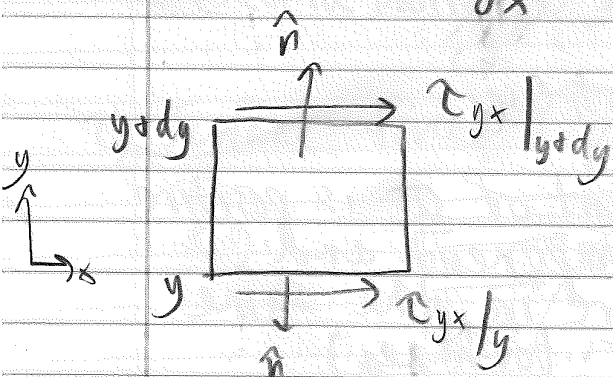 ∂x
n̂
y+dy
τyx|y+dy
y
x
y
τyx|y
n̂